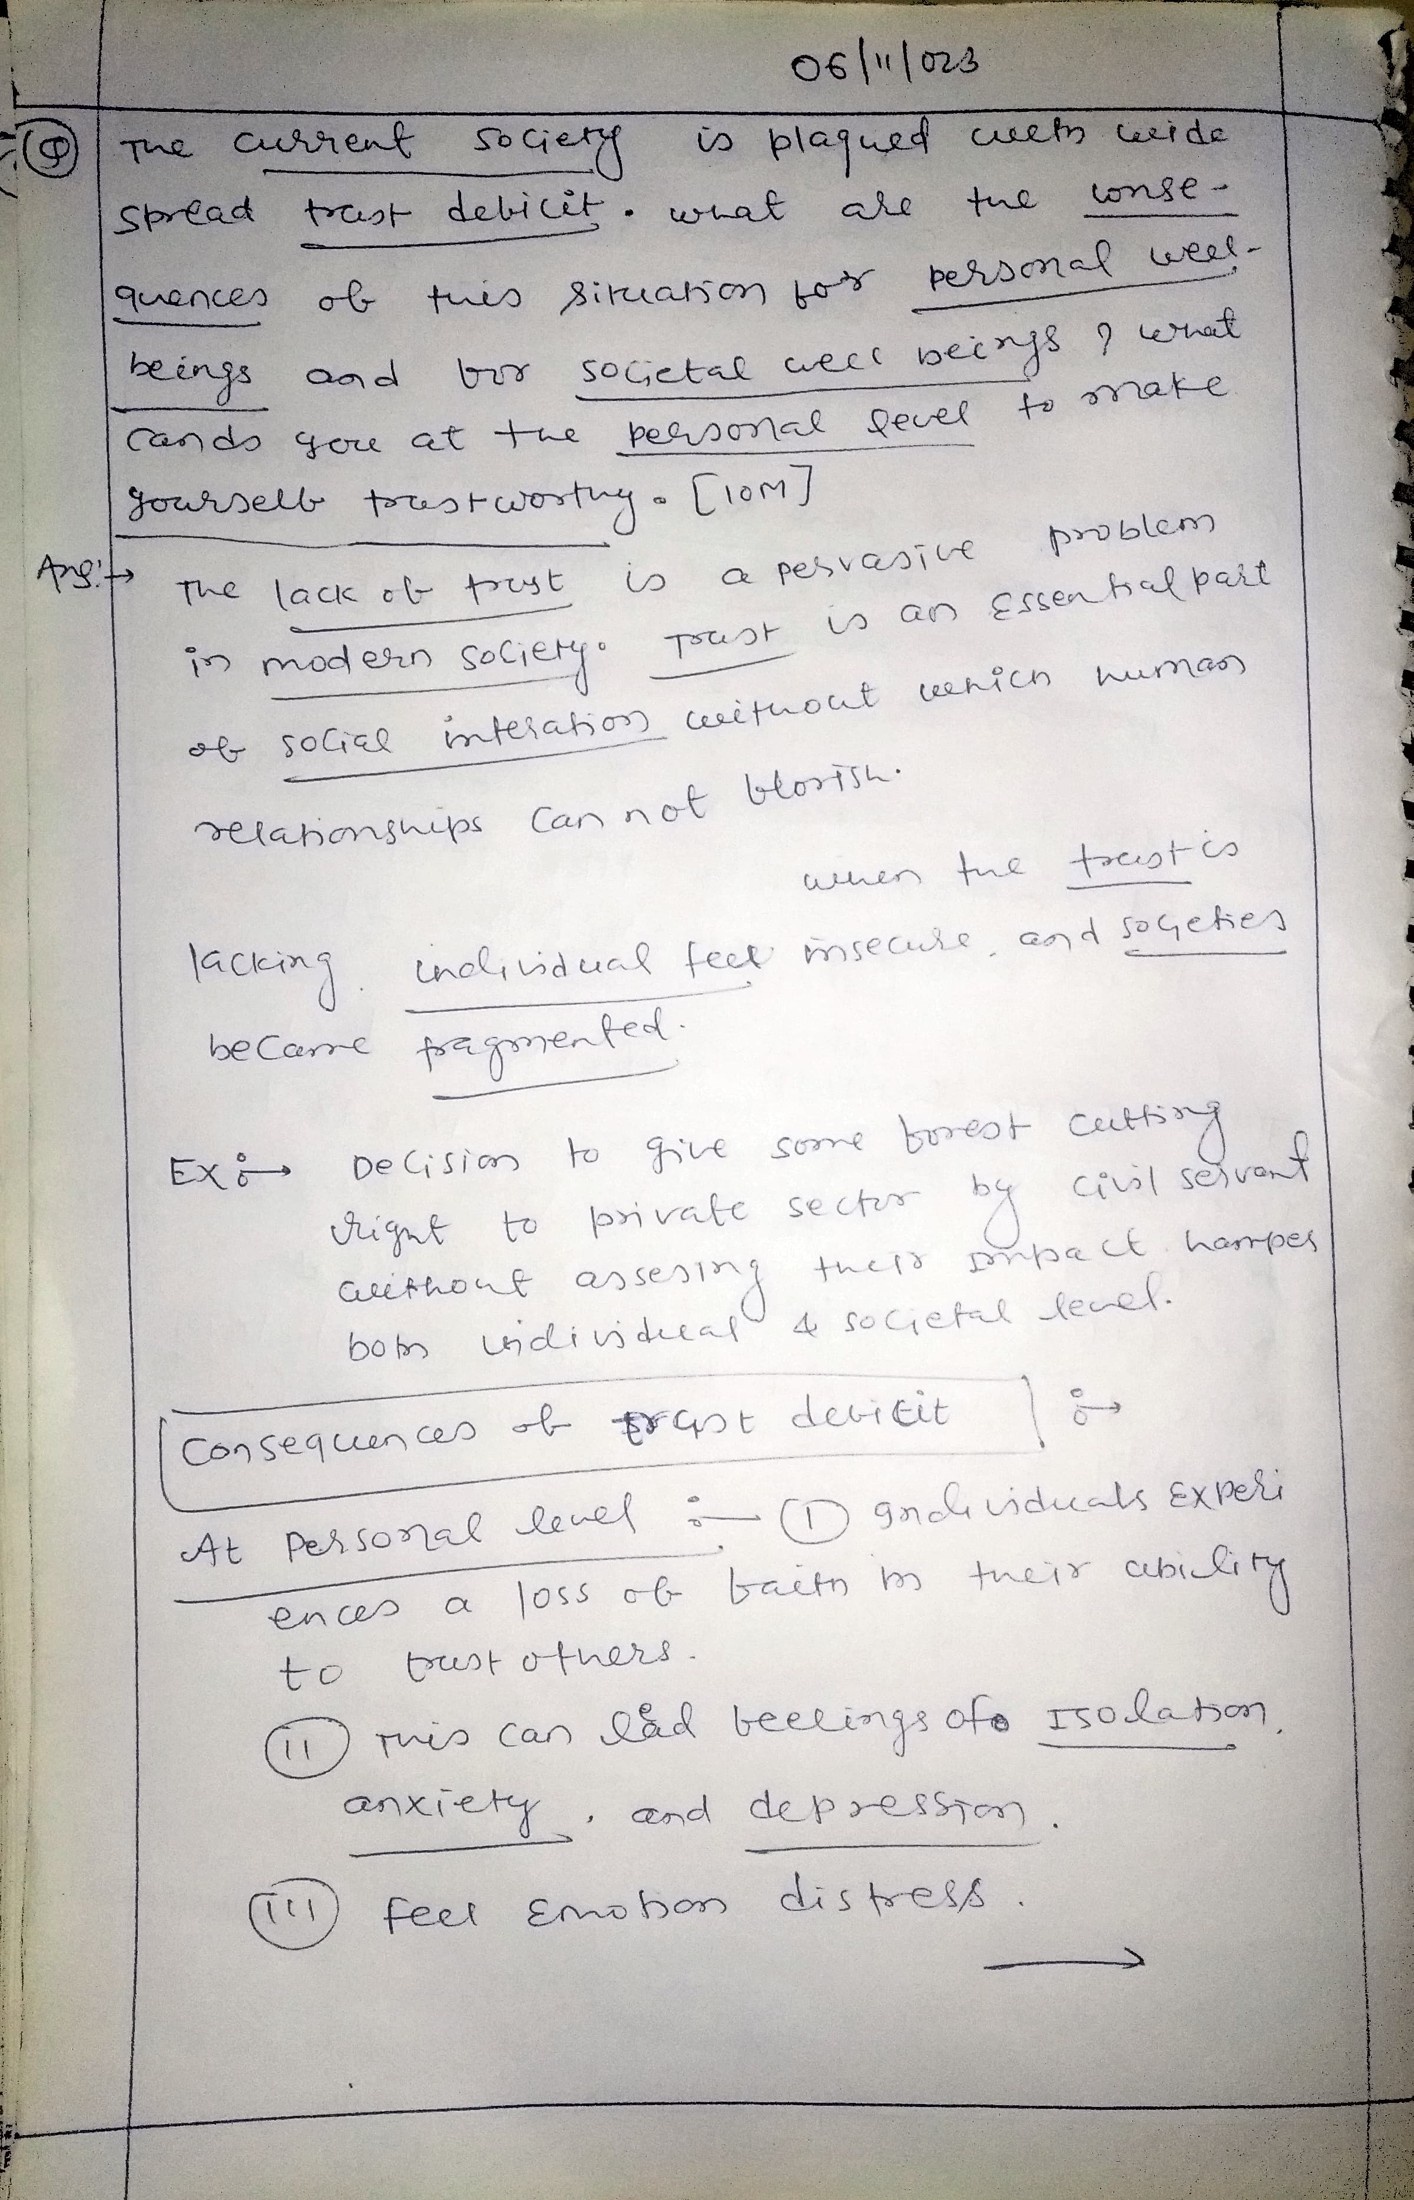 06/11/023
Q The current society is plaqued with wide
spread trust deficit. what are the conse-
quences of this situation for personal well-
beings and for societal well beings ? what
cando you at the personal level to make
yourself trustworthy. [10M]
Ans:→ The lack of trust is a pervasive problem
in modern society. Trust is an Essential part
of social interation without which human
relationships can not florish.
when the trust is
lacking, individual feel insecure, and societies
became fragmented.
Ex:→ Decision to give some forest cutting
right to private sector by civil servant
without assesing their impact hampes
both individual & societal level.
Consequences of trust deficit :→
At Personal level :— (I) Individuals Experi
ences a loss of faith in their ability
to trust others.
(II) This can lead feelings of Isolation,
anxiety, and depression.
(III) feel Emotion distress.
→